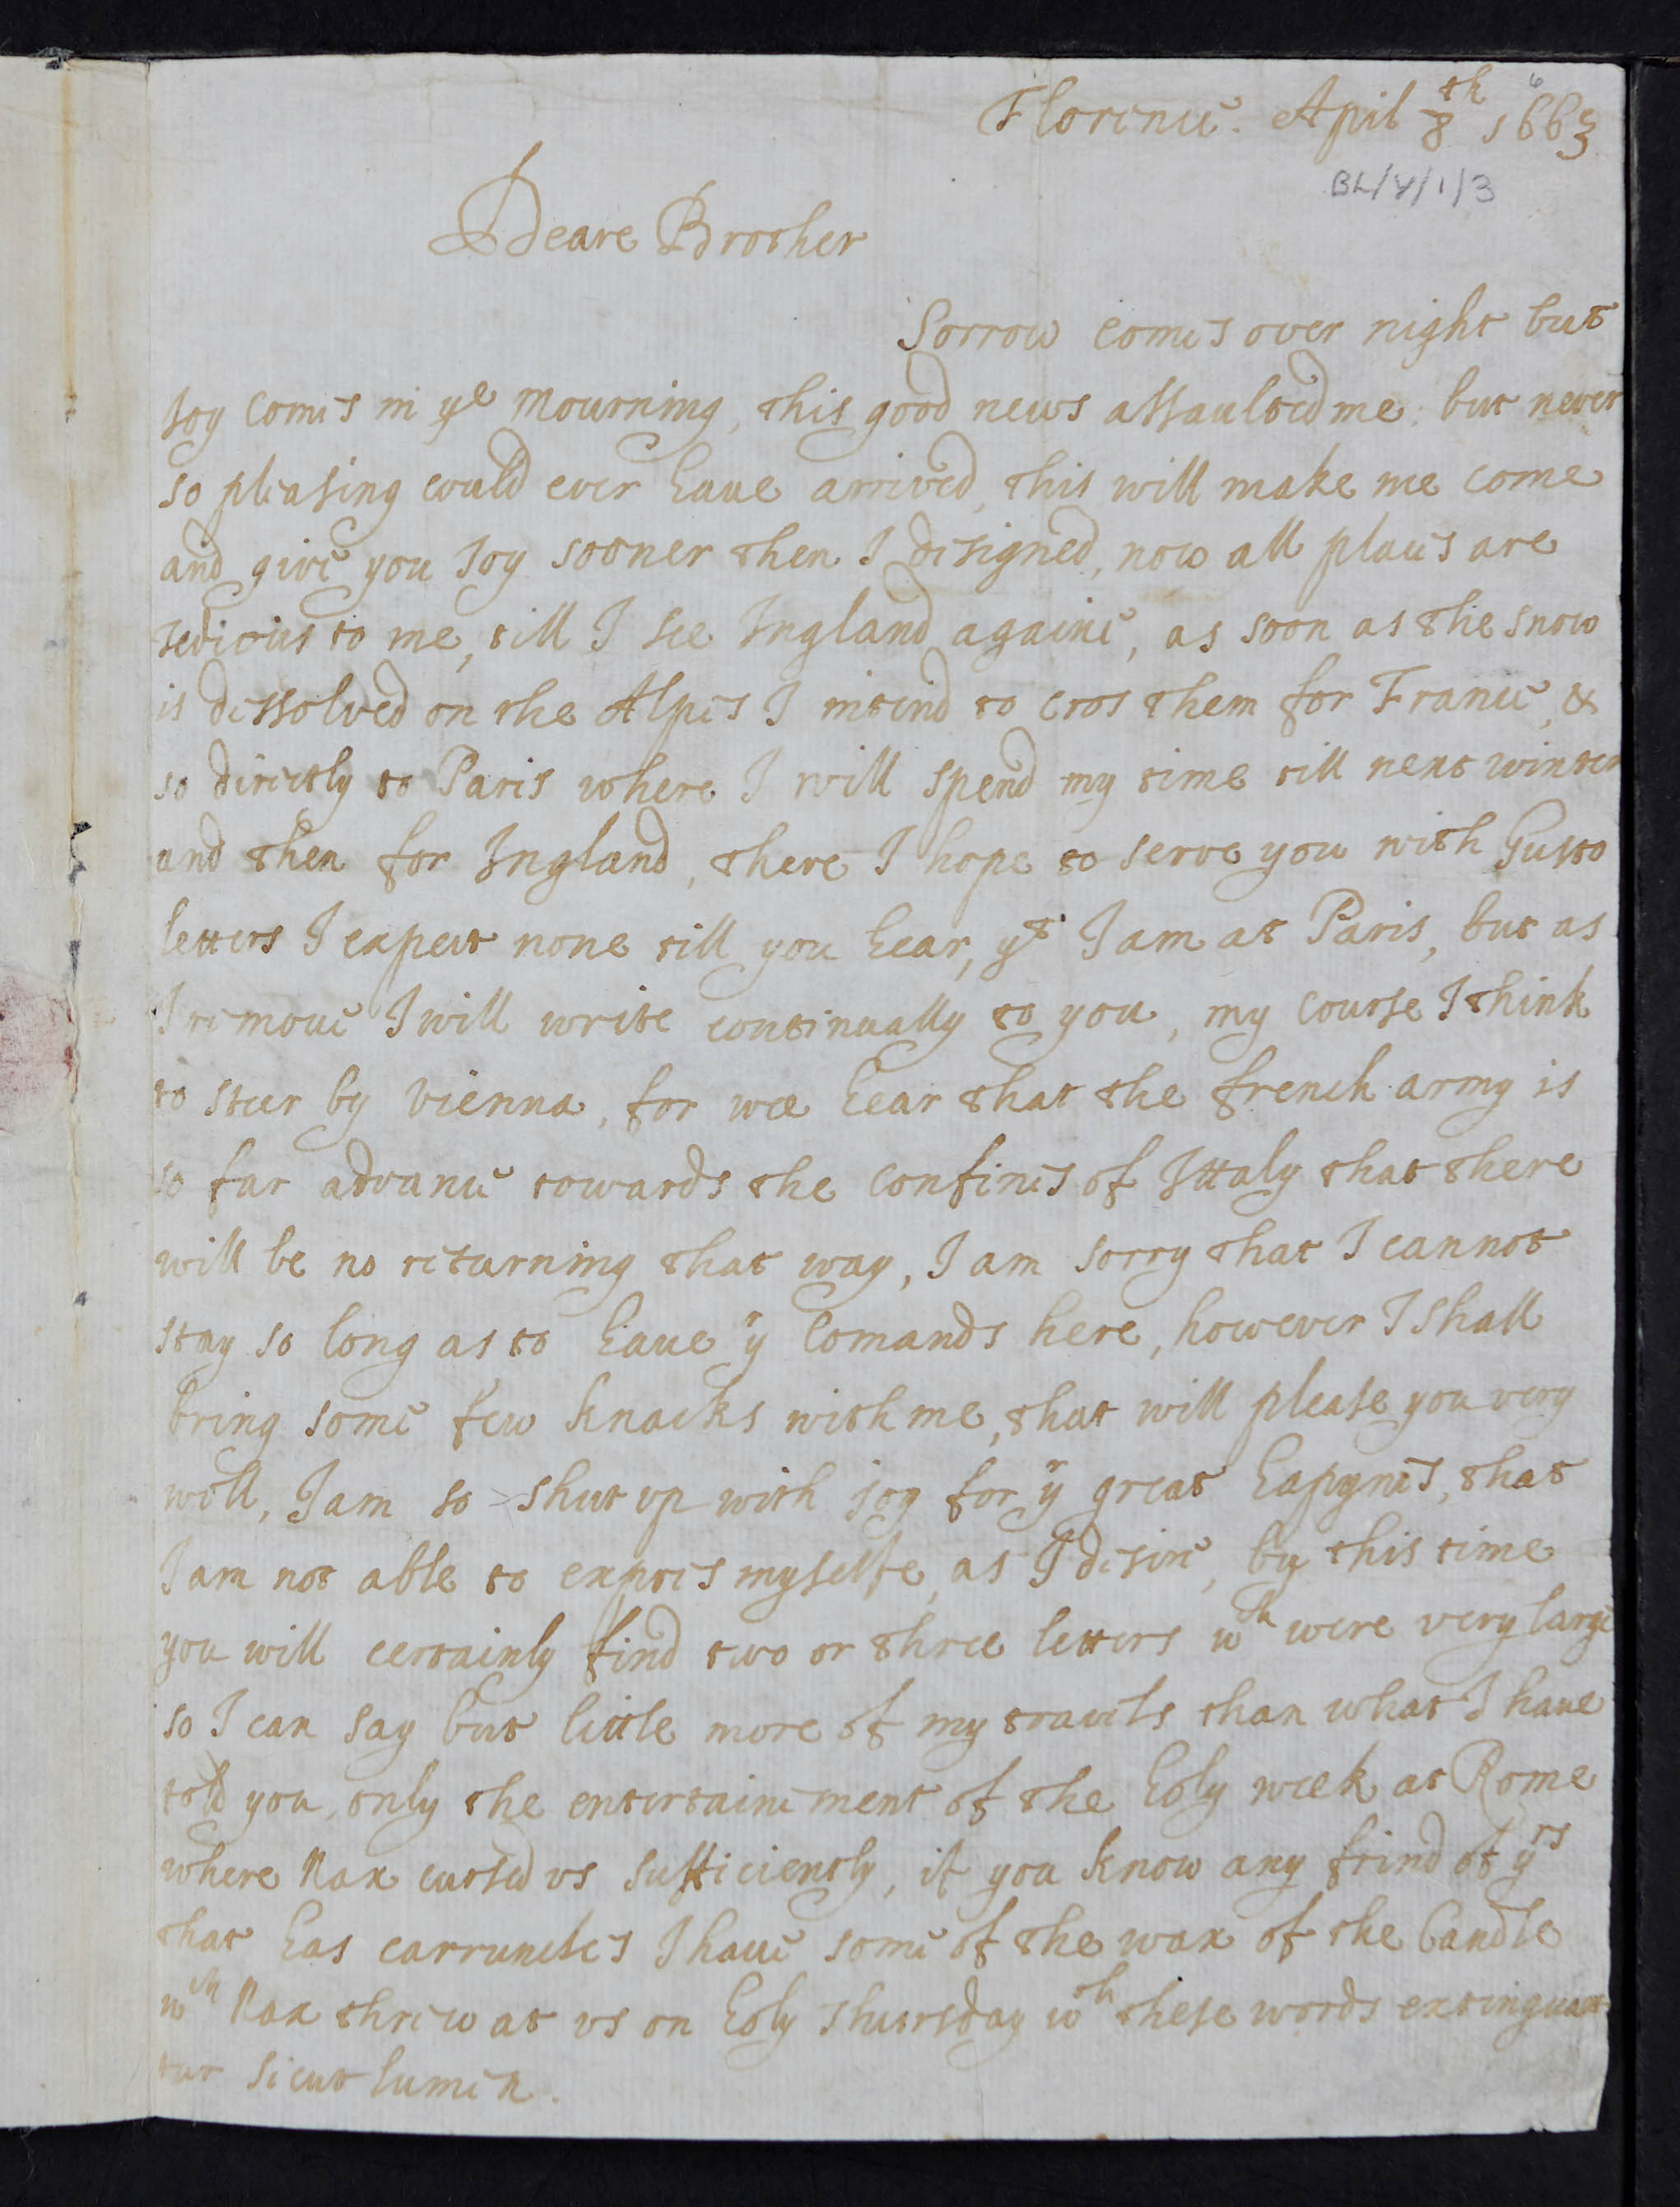 Florence. Apil 8th 1663
6
BL/Y/1/3
Deare Brother
Sorrow comes over night but
Joy comes in ye mourning, this good news assaulted me. but never
so pleasing could ever haue arrived, this will make me come
and give you Joy sooner then I designed, now all places are
tedious to me, till I see Ingland againe, as soon as the snow
is dessolved on the Alpes I intend to cros them for France, &
so directly to Paris where I will spend my time till next winter
and then for Ingland, there I hope to serve you with Gusto
letters I expect none till you hear, yt I am at Paris, but as
I remove I will write continually to you, my course I think
to steer by vienna, for wee hear that the french army is
so far advance towards the confines of Ittaly that there
will be no returning that way, I am sorry that I cannot
stay so long as to haue yr Comands here, however I shall
bring some few knacks with me, that will please you very
well, I am so shut up with joy for yr great hapynes, that
I am not able to expres myselfe, as I desire, by this time
you will certainly find two or three letters wch were very large
so I can say but little more of my travels than what I haue
told you, only the entertainement of the holy week at Rome
where Nan cursed vs sufficiently, if you know any frind of yrs
that has carruncles I have some of the wax of the Candle
wch Nan threw at vs on holy thursday wth these words extinguan
tur sicut lumen.